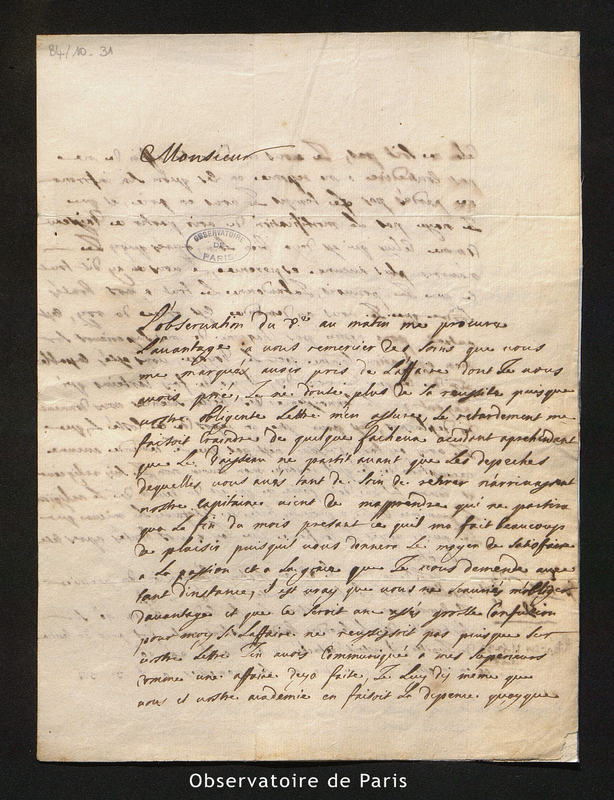 B4/10-31
Monsieur
OBSERVATOIRE
DE
PARIS
L'observation du au matin me procure
L'avantage a vous remercier des soins que vous
me marquez avoir pris de L'affaire dont Je vous
avois prié, Je ne doute plus de la reussite puisque
vostre obligente Lettre m'en assure, Le retardement me
faisoit craindre de quelque facheux accident aprehendant
que Le Vaisseau ne partit avant que Les depeches
dequelles vous avez tant de soin de retirer n'arrivassent
nostre capitaine vient de m'apprendre qu'il ne partira
qu'a La fin du mois presant ce qui me fait beaucoup
de plaisir puisqu'il vous donnera Le moyen de satisfaire
a La passion et a La grace que Je vous demande avec
tant d'instance, Il est vray que vous ne scauriez m'obliger
davantage et que ce seroit une grosse Confusion
pour moy si L'affaire ne reussissoit pas puisque sur
vostre Lettre J'en avois Communiqué a mes superieurs
comme une affaire deja faite, Je Luy dis même que
vous et vostre academie en faisoit La depense quoyque
Observatoire de Paris